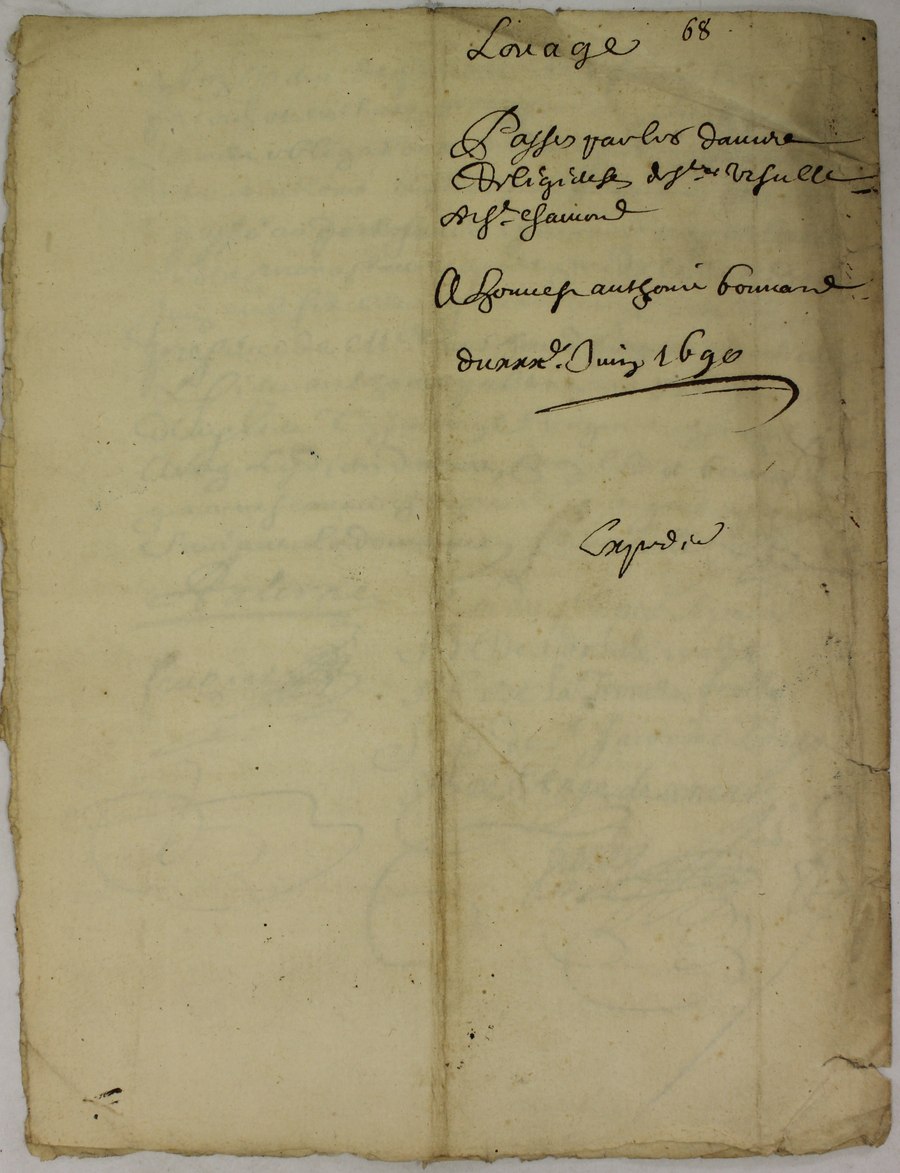 68
Louage
Passes par les dames
Religieuses de Ste Ursulle
de St Chamond
A honneste anthoine bonnard
du xxxe. Juin 1690
Expedié